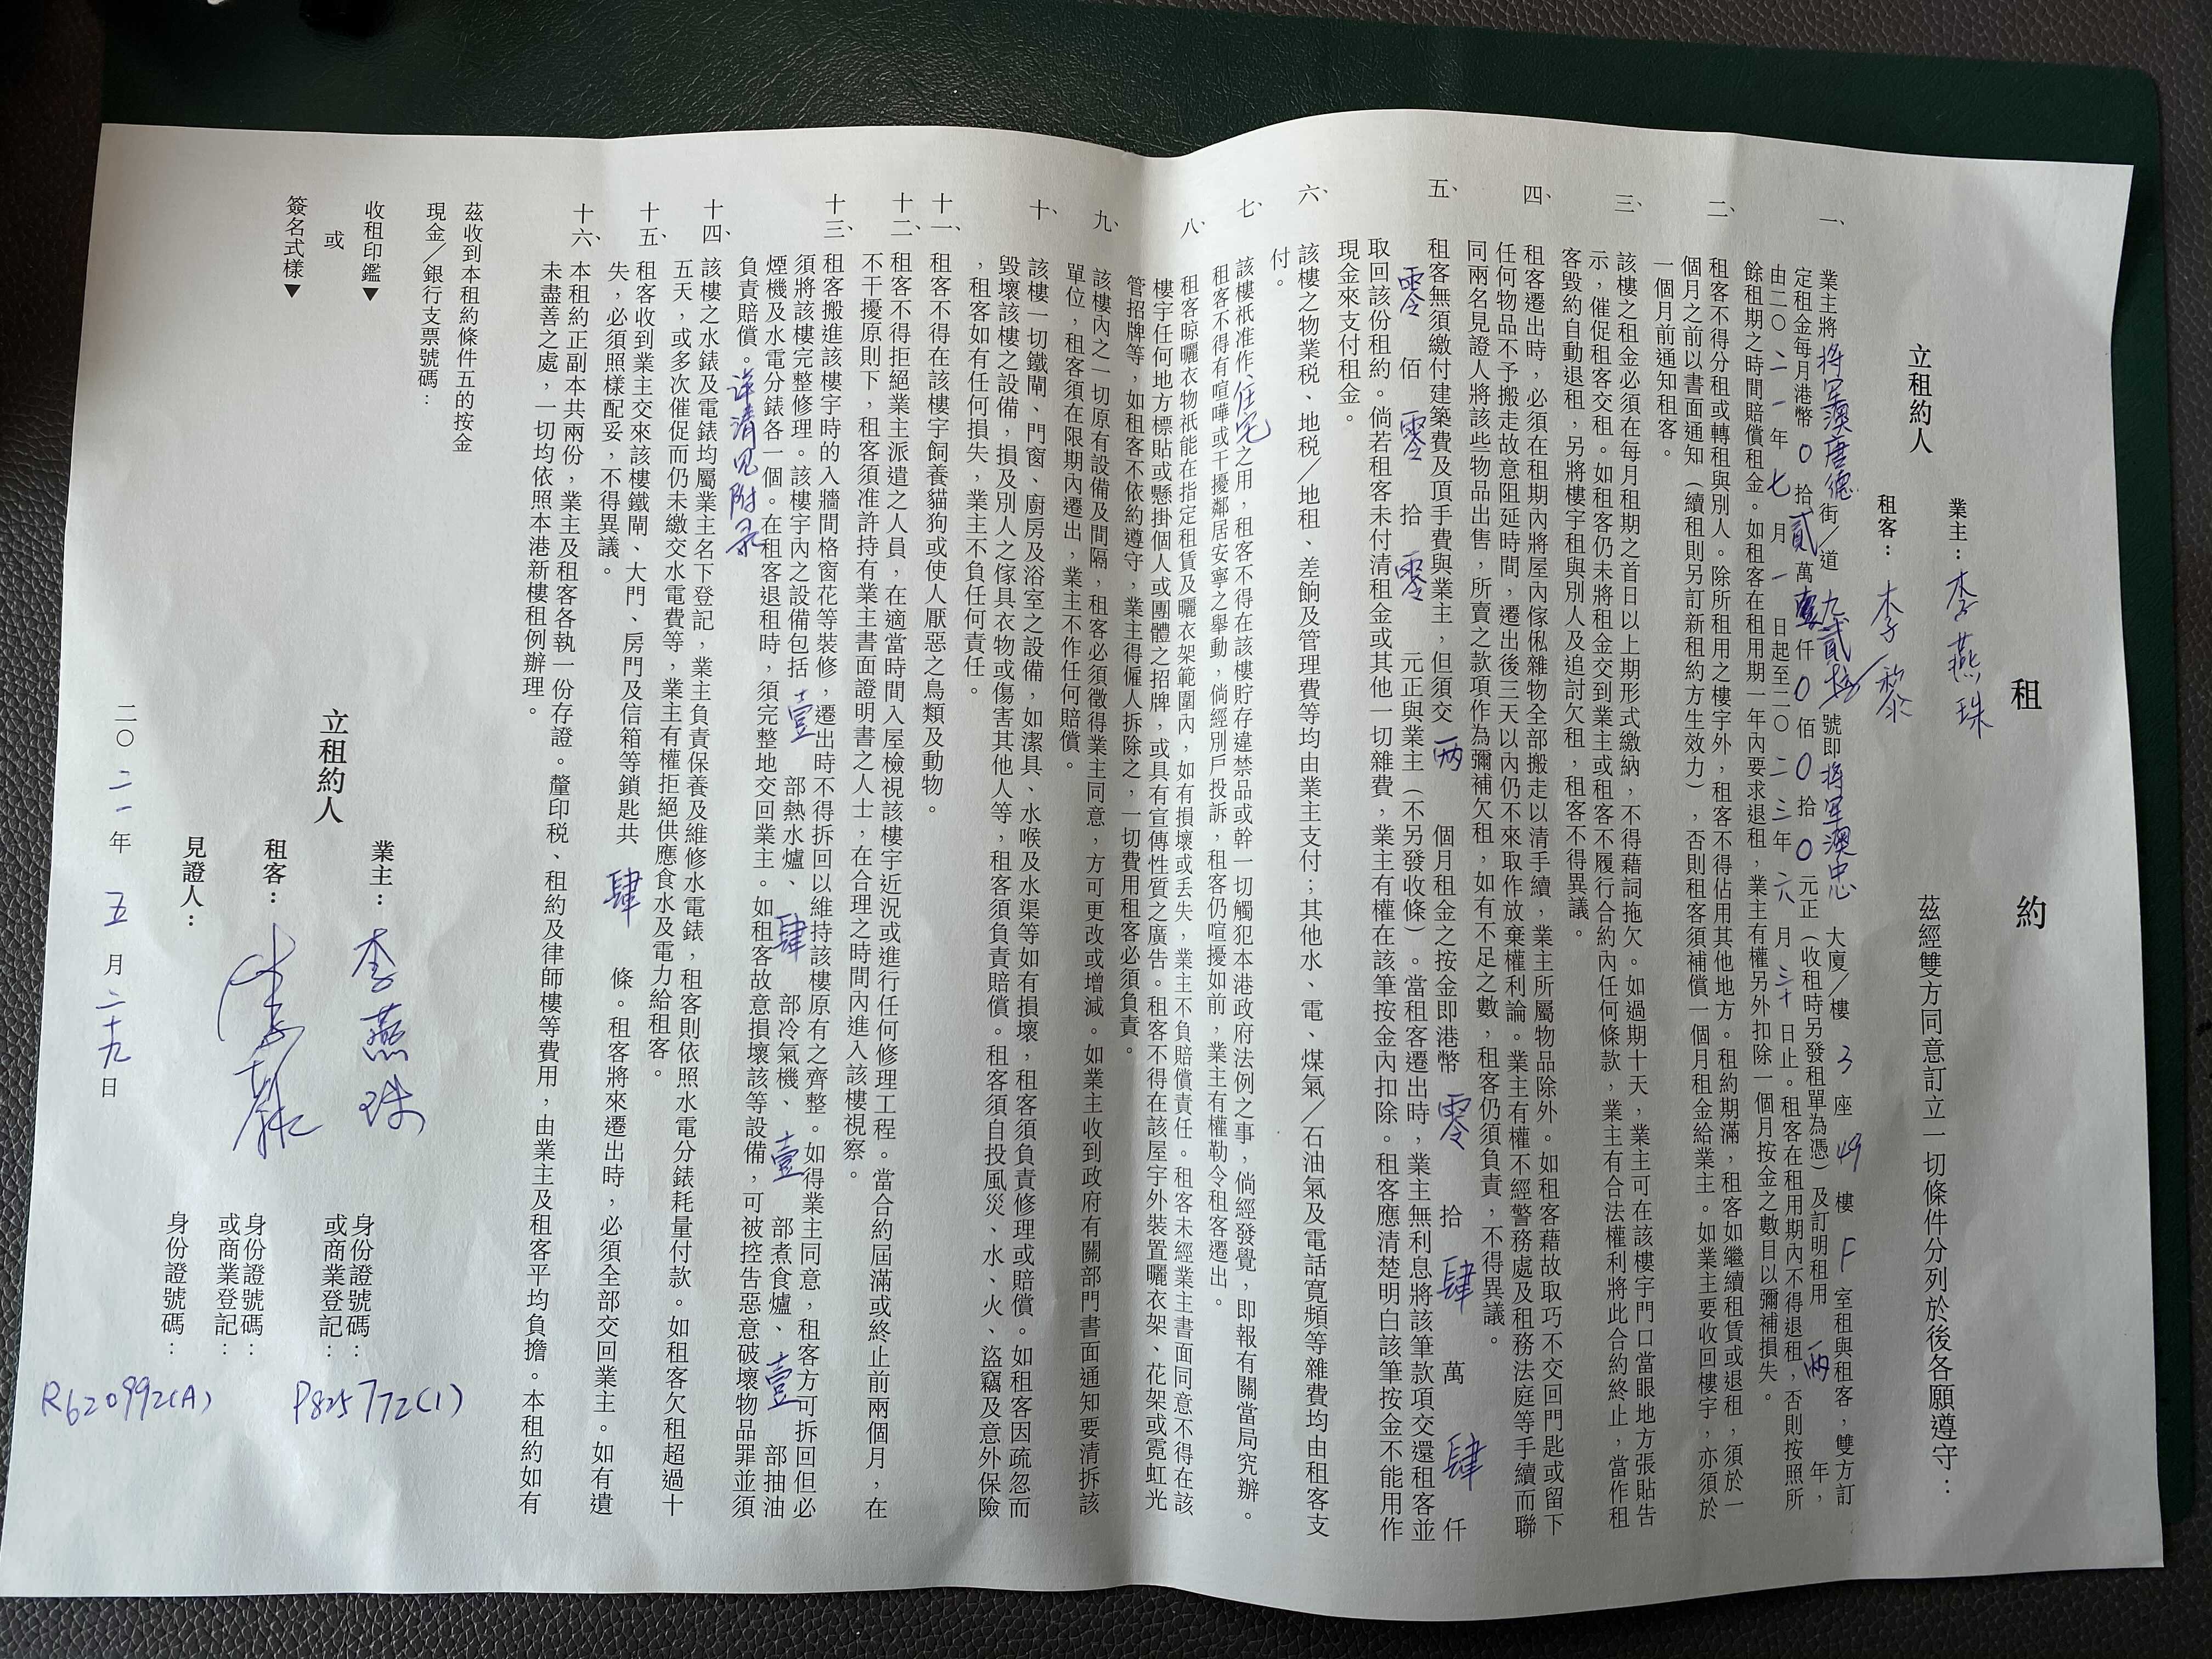 租約
立租約人
業主：李燕珠
租客：李黎
茲經雙方同意訂立一切條件分列於後各願遵守：
一、業主將將軍澳唐德街／道 九貳拾 號即將軍澳忠 大廈／樓 3 座 49 樓 F 室租與租客，雙方訂
定租金每月港幣 0 拾 貳 萬 壹 仟 0 佰 0 拾 0 元正（收租時另發租單為憑）及訂明租用 兩 年，
由二〇二一年七月一日起至二〇二三年六月三十日止。租客在租用期內不得退租，否則按照所
餘租期之時間賠償租金。如租客在租用期一年內要求退租，業主有權另外扣除一個月按金之數目以彌補損失。
二、租客不得分租或轉租與別人。除所租用之樓宇外，租客不得佔用其他地方。租約期滿，租客如繼續租賃或退租，須於一
個月之前以書面通知（續租則另訂新租約方生效力），否則租客須補償一個月租金給業主。如業主要收回樓宇，亦須於
一個月前通知租客。
三、該樓之租金必須在每月租期之首日以上期形式繳納，不得藉詞拖欠。如過期十天，業主可在該樓宇門口當眼地方張貼告
示，催促租客交租。如租客仍未將租金交到業主或租客不履行合約內任何條款，業主有合法權利將此合約終止，當作租
客毀約自動退租，另將樓宇租與別人及追討欠租，租客不得異議。
四、租客遷出時，必須在租期內將屋內傢俬雜物全部搬走以清手續，業主所屬物品除外。如租客藉故取巧不交回門匙或留下
任何物品不予搬走故意阻延時間，遷出後三天以內仍不來取作放棄權利論。業主有權不經警務處及租務法庭等手續而聯
同兩名見證人將該些物品出售，所賣之款項作為彌補欠租，如有不足之數，租客仍須負責，不得異議。
五、租客無須繳付建築費及頂手費與業主，但須交 兩 個月租金之按金即港幣 零 拾 肆 萬 肆 仟
零 佰 零 拾 零 元正與業主（不另發收條）。當租客遷出時，業主無利息將該筆款項交還租客並
取回該份租約。倘若租客未付清租金或其他一切雜費，業主有權在該筆按金內扣除。租客應清楚明白該筆按金不能用作
現金來支付租金。
六、該樓之物業稅、地稅／地租、差餉及管理費等均由業主支付；其他水、電、煤氣／石油氣及電話寬頻等雜費均由租客支
付。
七、該樓祇准作 住宅 之用，租客不得在該樓貯存違禁品或幹一切觸犯本港政府法例之事，倘經發覺，即報有關當局究辦。
租客不得有喧嘩或干擾鄰居安寧之舉動，倘經別戶投訴，租客仍喧擾如前，業主有權勒令租客遷出。
八、租客晾曬衣物祇能在指定租賃及曬衣架範圍內，如有損壞或丟失，業主不負賠償責任。租客未經業主書面同意不得在該
樓宇任何地方標貼或懸掛個人或團體之招牌，或具有宣傳性質之廣告。租客不得在該屋宇外裝置曬衣架、花架或霓虹光
管招牌等，如租客不依約遵守，業主得僱人拆除之，一切費用租客必須負責。
九、該樓內之一切原有設備及間隔，租客必須徵得業主同意，方可更改或增減。如業主收到政府有關部門書面通知要清拆該
單位，租客須在限期內遷出，業主不作任何賠償。
十、該樓一切鐵閘、門窗、廚房及浴室之設備，如潔具、水喉及水渠等如有損壞，租客須負責修理或賠償。如租客因疏忽而
毀壞該樓之設備，損及別人之傢具衣物或傷害其他人等，租客須負責賠償。租客須自投風災、水、火、盜竊及意外保險
，租客如有任何損失，業主不負任何責任。
十一、租客不得在該樓宇飼養貓狗或使人厭惡之鳥類及動物。
十二、租客不得拒絕業主派遣之人員，在適當時間入屋檢視該樓宇近況或進行任何修理工程。當合約屆滿或終止前兩個月，在
不干擾原則下，租客須准許持有業主書面證明書之人士，在合理之時間內進入該樓視察。
十三、租客搬進該樓宇時的入牆間格窗花等裝修，遷出時不得拆回以維持該樓原有之齊整。如得業主同意，租客方可拆回但必
須將該樓完整修理。該樓宇內之設備包括 壹 部熱水爐、 肆 部冷氣機、 壹 部煮食爐、 壹 部抽油
煙機及水電分錶各一個。在租客退租時，須完整地交回業主。如租客故意損壞該等設備，可被控告惡意破壞物品罪並須
負責賠償。详清见附录
十四、該樓之水錶及電錶均屬業主名下登記，業主負責保養及維修水電錶，租客則依照水電分錶耗量付款。如租客欠租超過十
五天，或多次催促而仍未繳交水電費等，業主有權拒絕供應食水及電力給租客。
十五、租客收到業主交來該樓鐵閘、大門、房門及信箱等鎖匙共 肆 條。租客將來遷出時，必須全部交回業主。如有遺
失，必須照樣配妥，不得異議。
十六、本租約正副本共兩份，業主及租客各執一份存證。釐印稅、租約及律師樓等費用，由業主及租客平均負擔。本租約如有
未盡善之處，一切均依照本港新樓租例辦理。
茲收到本租約條件五的按金
現金／銀行支票號碼：
收租印鑑▼
或
簽名式樣▼
立租約人
業主：李燕珠
身份證號碼：
或商業登記：
P825772(1)
租客：李黎
身份證號碼：
或商業登記：
R620992(A)
見證人：
身份證號碼：
二〇二一年五月二十九日